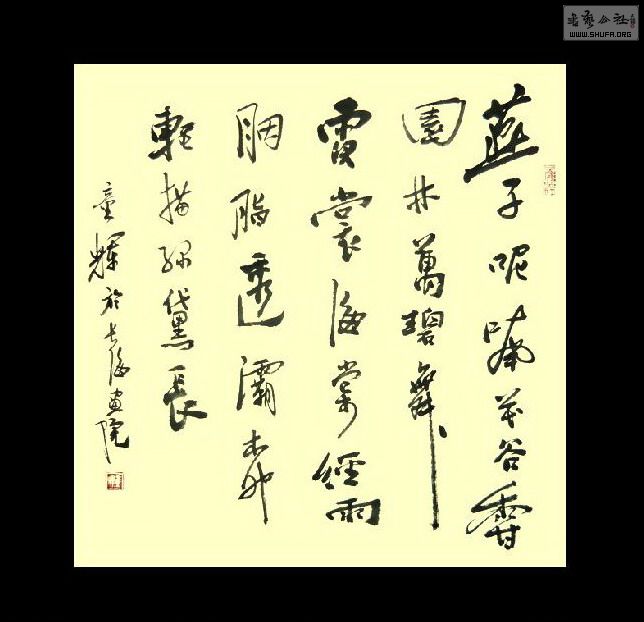 書藝公社
WWW.SHUFA.ORG
燕子呢喃花谷香
園林萬碧舞
霞裳海棠經雨
胭脂透灞柳
輕描綠黛長
童輝於長海畫院